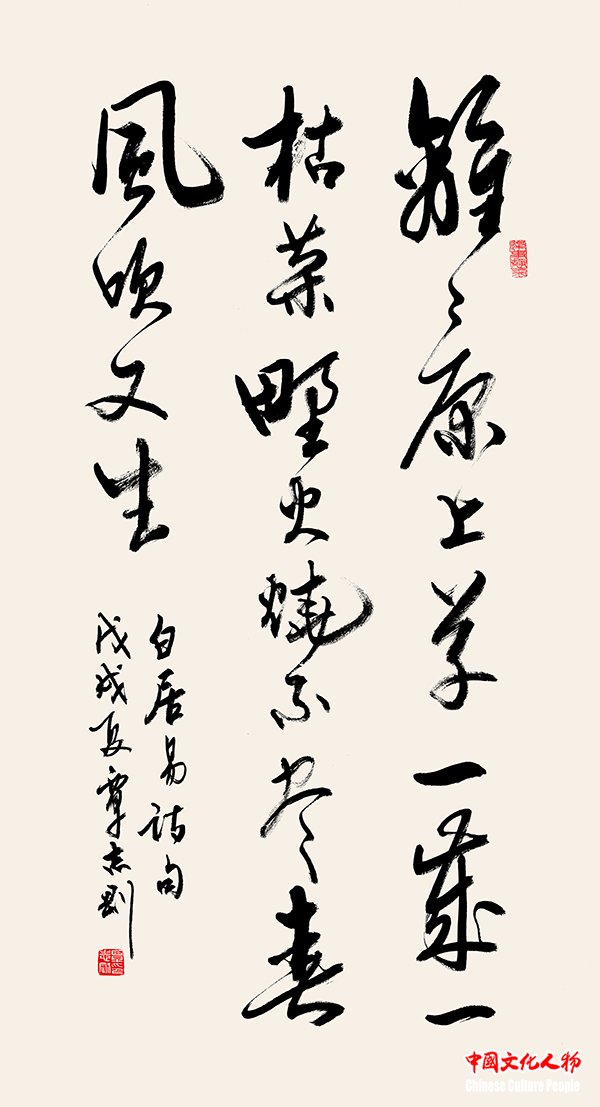 離〻原上草一歲一
枯荣野火燒不尽春
風吹又生
白居易詩句
戊戌夏覃志剛
中國文化人物
Chinese Culture People